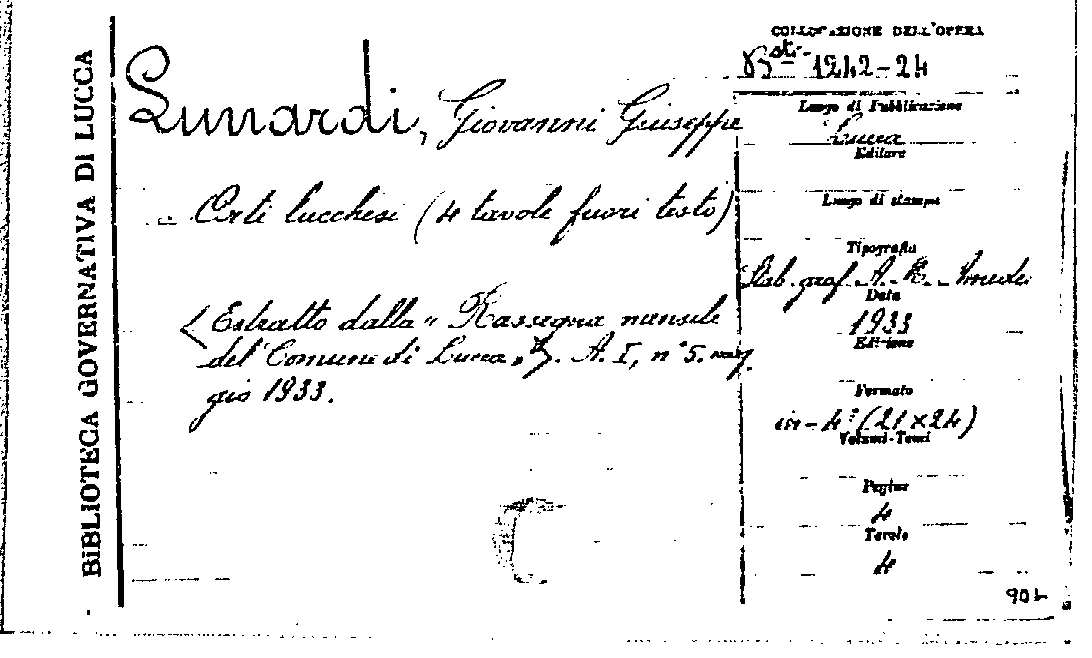 BIBLIOTECA GOVERNATIVA DI LUCCA
Lunardi, Giovanni Giuseppe
Arti lucchesi (4 tavole fuori testo)
Estratto dalla " Rassegna mensile
del Comune di Lucca ", A. I, n° 5. mag
gio 1933.
COLLOCAZIONE DELL'OPERA
1242-24
Luogo di Pubblicazione
Lucca
Editore
Luogo di stampa
Tipografia
Stab. graf. A. R. Amedei
Data
1933
Edizione
Formato
in-4° (21×24)
Volumi-Tomi
Pagine
4
Tavole
4